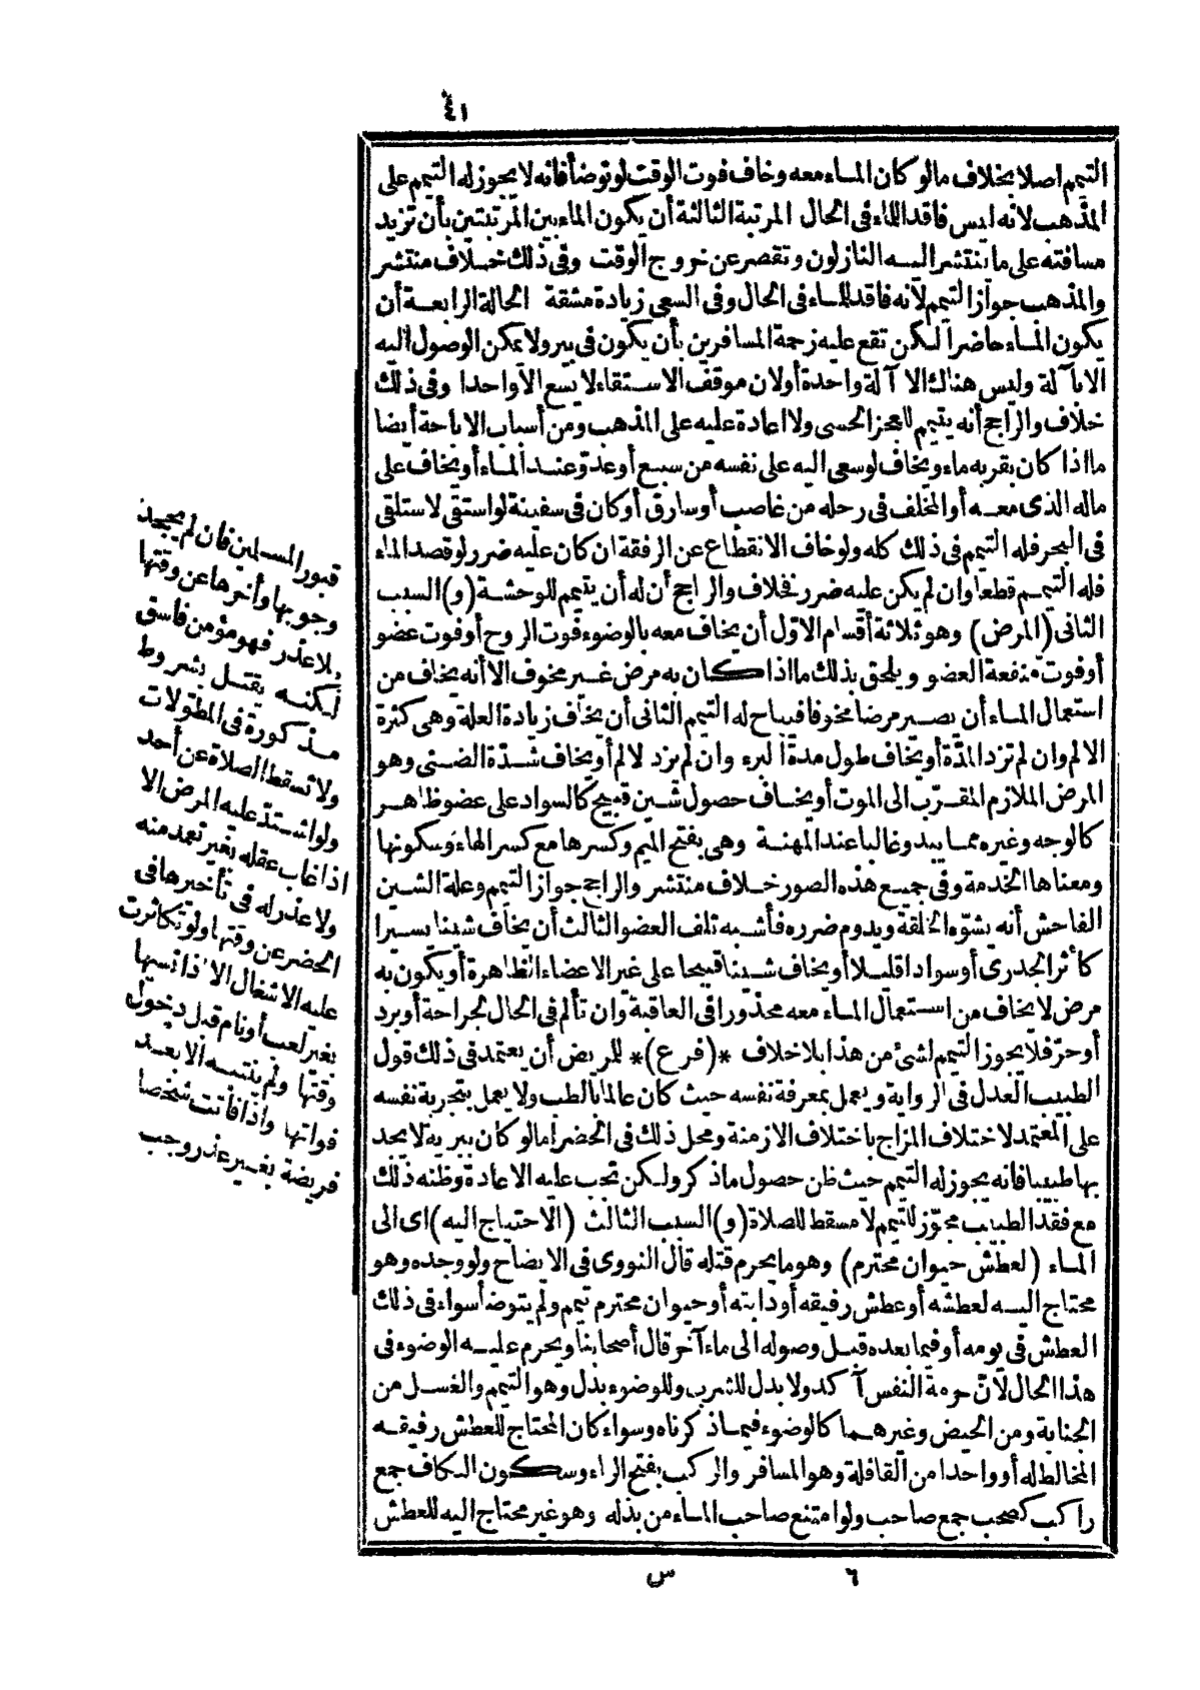 ٤١
التيمم اصلا بخلاف مالو كان الماء معه وخاف فوت الوقت لو توضأ فانه لا يجوز له التيمم على
المذهب لانه ليس فاقد الماء فى الحال المرتبة الثالثة أن يكون الماء بين المرتبتين بأن تزيد
مسافته على ما ينتشر اليه النازلون وتقصر عن خروج الوقت وفى ذلك خلاف منتشر
والمذهب جواز التيمم لانه فاقد للماء فى الحال وفى السعى زيادة مشقة الحالة الرابعة أن
يكون الماء حاضرا لكن تقع عليه زحمة المسافرين بأن يكون فى بير ولا يمكن الوصول اليه
الا بآلة وليس هناك الا آلة واحدة أو لان موقف الاستقاء لا يسع الا واحدا وفى ذلك
خلاف والراجح أنه يتيمم للعجز الحسى ولا اعادة عليه على المذهب ومن أسباب الاباحة أيضا
ما اذا كان بقربه ماء ويخاف لو سعى اليه على نفسه من سبع أو عدو عند الماء أو يخاف على
ماله الذى معه أو المخلف فى رحله من غاصب أو سارق أو كان فى سفينة لو استقى لاستلقى
فى البحر فله التيمم فى ذلك كله ولو خاف الانقطاع عن الرفقة ان كان عليه ضرر لو قصد الماء
فله التيمم قطعا وان لم يكن عليه ضرر فخلاف والراجح أن له أن يتيمم للوحشة (و) السبب
الثانى (المرض) وهو ثلاثة أقسام الاول أن يخاف معه بالوضوء فوت الروح أو فوت عضو
أو فوت منفعة العضو ويلحق بذلك ما اذا كان به مرض غير مخوف الا أنه يخاف من
استعمال الماء أن يصير مرضا مخوفا فيباح له التيمم الثانى أن يخاف زيادة العلة وهى كثرة
الالم وان لم تزد المدة أو يخاف طول مدة البرء وان لم يزد الالم أو يخاف شدة الضنى وهو
المرض الملازم المقرب الى الموت أو يخاف حصول شين قبيح كالسواد على عضو ظاهر
كالوجه وغيره مما يبدو غالبا عند المهنة وهى بفتح الميم وكسرها مع كسر الهاء وسكونها
ومعناها الخدمة وفى جميع هذه الصور خلاف منتشر والراجح جواز التيمم وعلة الشين
الفاحش أنه يشوه الخلقة ويدوم ضرره فأشبه تلف العضو الثالث أن يخاف شينا يسيرا
كأثر الجدرى أو سوادا قليلا أو يخاف شينا قبيحا على غير الاعضاء الظاهرة أو يكون به
مرض لا يخاف من استعمال الماء معه محذورا فى العاقبة وان تألم فى الحال لجراحة أو برد
أو حر فلا يجوز التيمم لشئ من هذا بلا خلاف *(فرع)* للمريض أن يعتمد فى ذلك قول
الطبيب العدل فى الرواية ويعمل بمعرفة نفسه حيث كان عالما بالطب ولا يعمل بتجربة نفسه
على المعتمد لاختلاف المزاج باختلاف الازمنة ومحل ذلك فى الحضر اما لو كان ببرية لا يجد
بها طبيبا فانه يجوز له التيمم حيث ظن حصول ما ذكر ولكن تجب عليه الاعادة وظنه ذلك
مع فقد الطبيب مجوز للتيمم لا مسقط للصلاة (و) السبب الثالث (الاحتياج اليه) اى الى
الماء (لعطش حيوان محترم) وهو ما يحرم قتله قال النووى فى الايضاح ولو وجده وهو
محتاج اليه لعطشه أو عطش رفيقه أو دابته أو حيوان محترم تيمم ولم يتوضأ سواء فى ذلك
العطش فى يومه أو فيما بعده قبل وصوله الى ماء آخر قال أصحابنا ويحرم عليه الوضوء فى
هذا الحال لان حرمة النفس آكد ولا بدل للشرب وللوضوء بدل وهو التيمم والغسل من
الجنابة ومن الحيض وغيرهما كالوضوء فيما ذكرناه وسواء كان المحتاج للعطش رفيقه
المخالط له أو واحدا من القافلة وهو المسافر والركب بفتح الراء وسكون الكاف جمع
راكب كصحب جمع صاحب ولو امتنع صاحب الماء من بذله وهو غير محتاج اليه للعطش
قبور المسلمين فان لم يجحد
وجوبها وأخرها عن وقتها
بلا عذر فهو مؤمن فاسق
لكنه يقتل بشروط
مذكورة فى المطولات
ولا تسقط الصلاة عن أحد
ولو اشتد عليه المرض الا
اذا غاب عقله بغير تعد منه
ولا عذر له فى تأخيرها فى
الحضر عن وقتها ولو تكاثرت
عليه الاشغال الا اذا نسيها
بغير لعب أو نام قبل دخول
وقتها ولم ينتبه الا بعد
فواتها واذا فاتت شخصا
فريضة بغير عذر وجب
٦ س